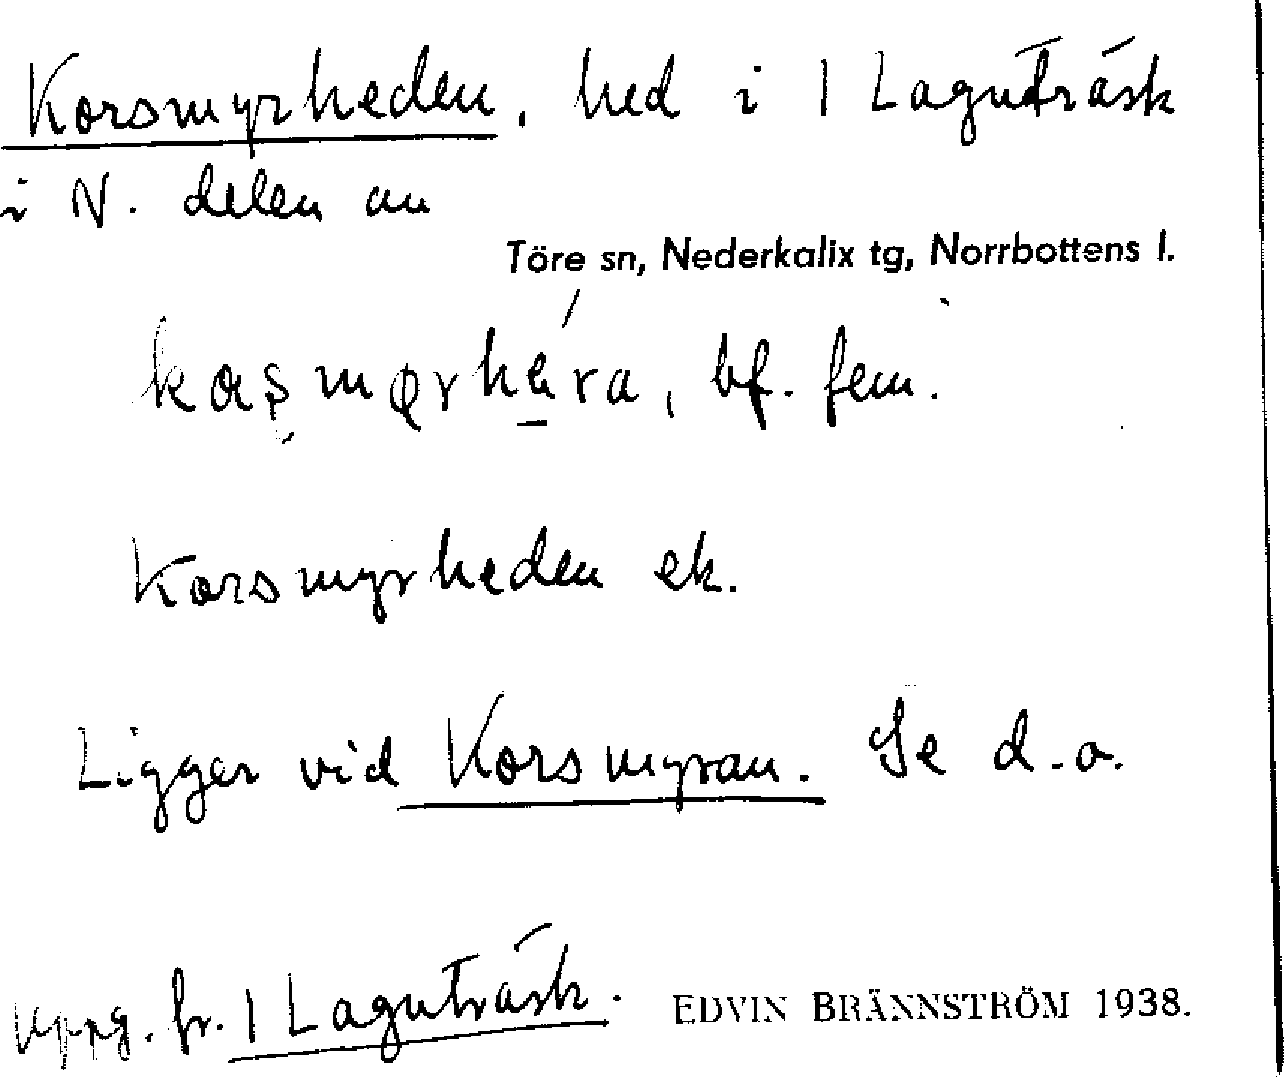 Korsmyrheden, hed i 1 Lagnträsk
i N. delen av
Töre sn, Nederkalix tg, Norrbottens l.
bf. fem.
Korsmyrheden ek.
Ligger vid Korsmyran. Se d.o.
Uppg. fr. 1 Lagnträsk. EDVIN BRÄNNSTRÖM 1938.